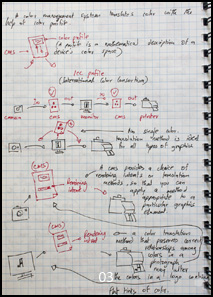 A color management system translates color with the
help of color profile.
color profile
(a profile is a mathematical description of a
device's color space)
CMS
ICC profile
(International Color Consortium)
in
out
camera
CMS
monitor
CMS
printer
No single color
translation method is ideal
for all types of graphics
CMS
Rendering intent
A CMS provides a choice of
rendering intents or translation
methods so that you can
apply a method
appropriate to a
particular graphic
element
CMS
Rendering intent
a color translation
method that preserves correct
relationships among
colors in a
photograph
may alter
the colors in a logo containing
flat tints of color.
03